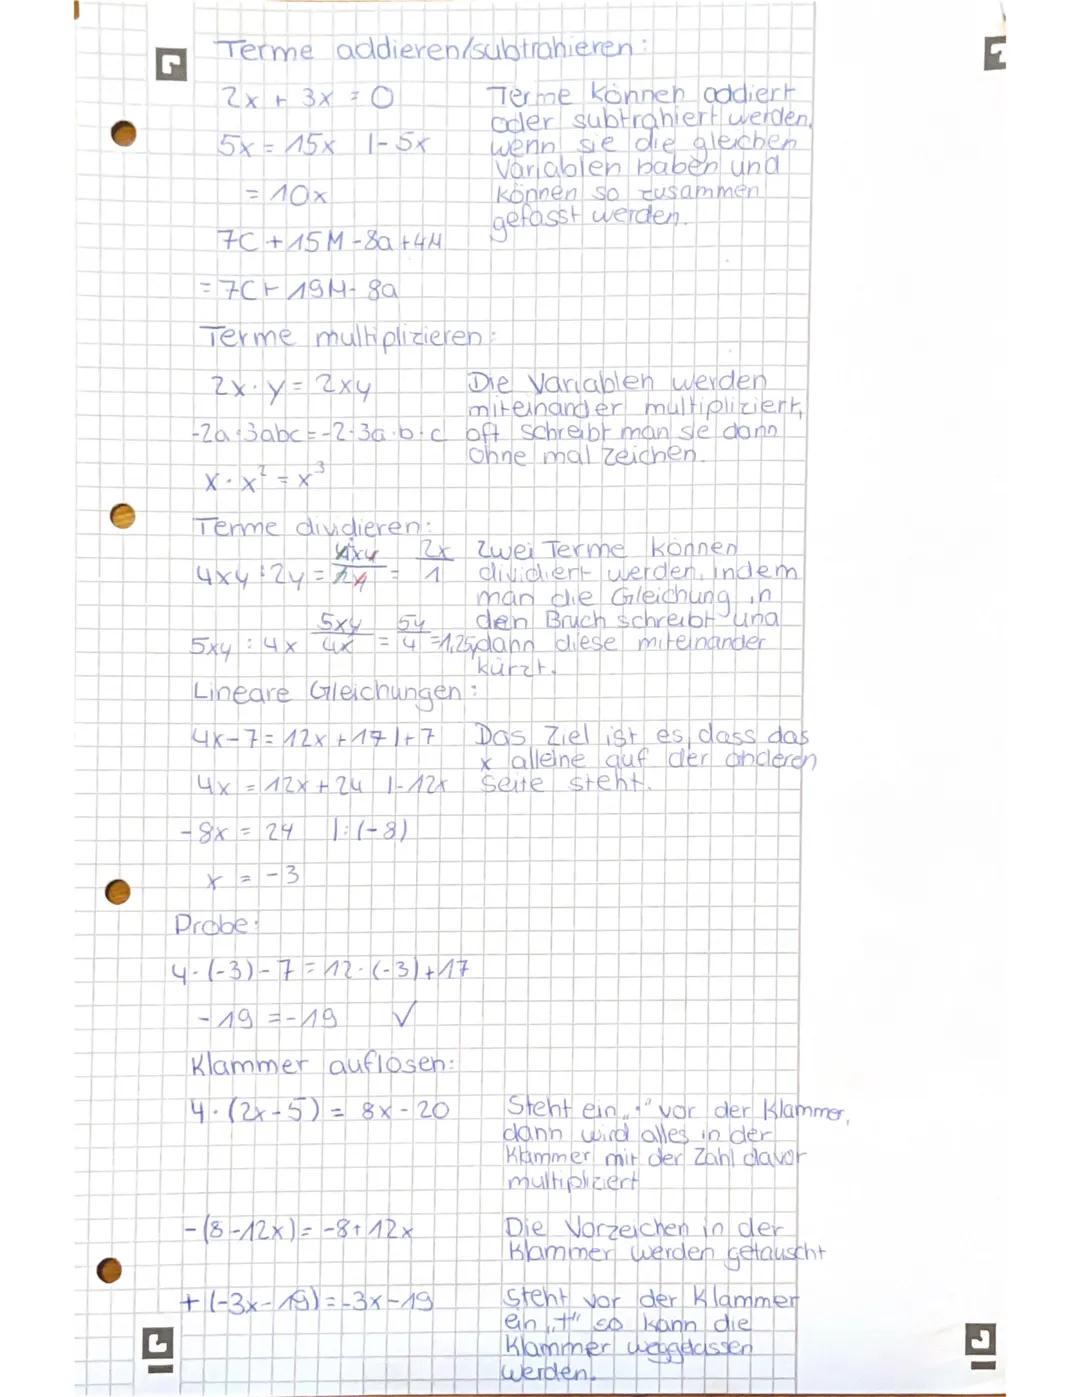 Terme addieren/subtrahieren:
2x + 3x = 0
Terme können addiert
oder subtrahiert werden,
5x = 15x |-5x
wenn sie die gleichen
Variablen haben und
= 10x
können so zusammen
gefasst werden.
7C + 15M - 8a + 4M
= 7C + 19M - 8a
Terme multiplizieren:
2x · y = 2xy
Die Variablen werden
miteinander multipliziert,
-2a · 3abc = -2 · 3a · b · c
oft schreibt man sie dann
ohne mal zeichen.
x · x² = x³
Terme dividieren:
4xy : 2y = 4xy/2y = 2x/1
Zwei Terme können
dividiert werden, indem
man die Gleichung in
den Bruch schreibt und
5xy : 4x 5xy/4x = 5y/4 = 1,25y
dann diese miteinander
kürzt.
Lineare Gleichungen:
4x-7 = 12x + 17 |+7
Das Ziel ist es, dass das
x alleine auf der anderen
4x = 12x + 24 |-12x
Seite steht.
-8x = 24 |:(-8)
x = -3
Probe:
4·(-3)-7 = 12·(-3)+17
-19 = -19 ✓
Klammer auflösen:
4·(2x-5) = 8x - 20
Steht ein „·" vor der Klammer,
dann wird alles in der
Klammer mit der Zahl davor
multipliziert
-(8-12x) = -8+12x
Die Vorzeichen in der
Klammer werden getauscht
+(-3x-19) = -3x-19
Steht vor der Klammer
ein „+" so kann die
Klammer weggelassen
werden.